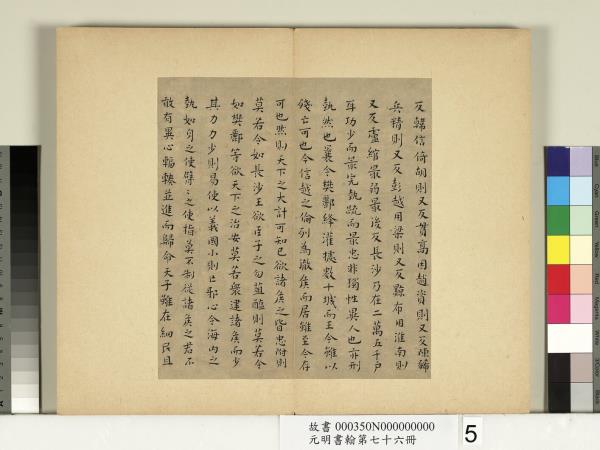 反韓信倚胡則又反貫高因趙資則又反陳豨
兵精則又反彭越用梁則又反黥布用淮南則
又反盧綰最弱最後反長沙乃在二萬五千戶
耳功少而最完埶疏而最忠非獨性異人也亦形
埶然也曩令樊酈絳灌據數十城而王今雖以
殘亡可也令信越之倫列為徹侯而居雖至今存
可也然則天下之大計可知已欲諸侯之皆忠附則
莫若令如長沙王欲臣子之勿菹醢則莫若令
如樊酈等欲天下之治安莫若衆建諸侯而少
其力力少則易使以義國小則亡邪心令海内之
埶如身之使臂〻之使指莫不制從諸侯之君不
敢有異心輻輳並進而歸命天子雖在細民且
故書 000350N000000000
元明書翰第七十六冊
5
Blue
Cyan
Green
Yellow
Red
Magenta
White
3/Color
Black